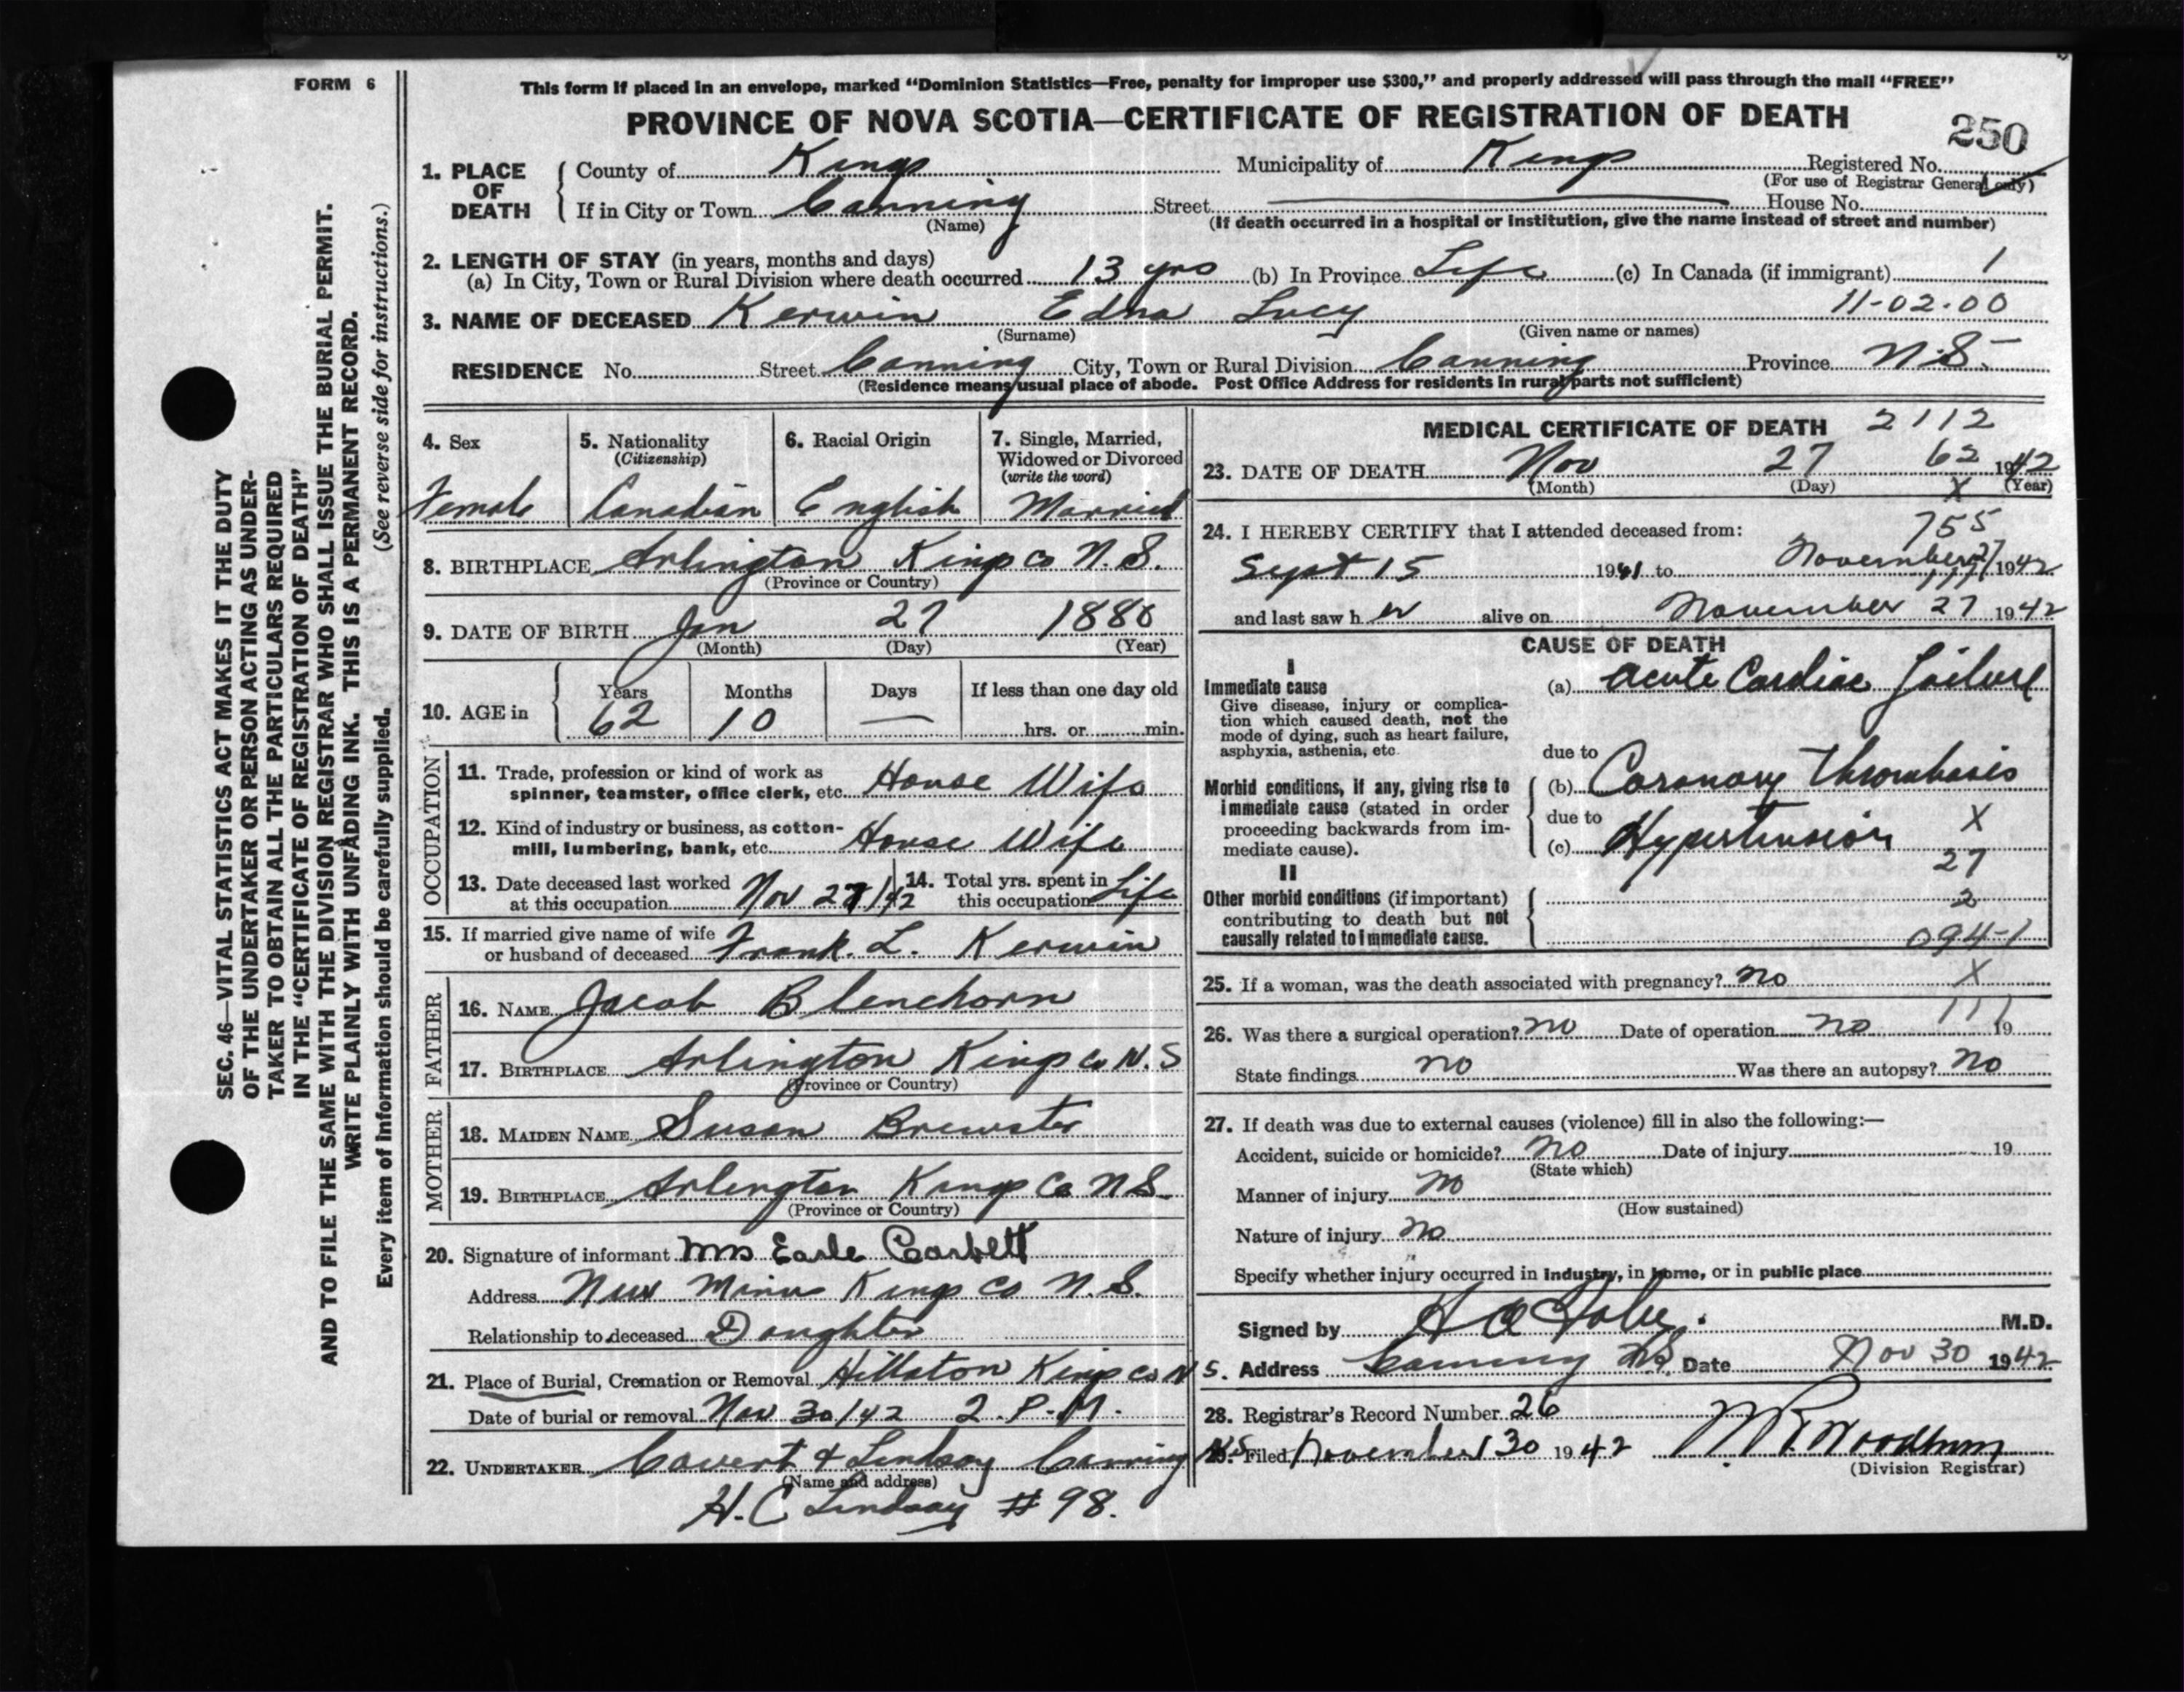 FORM 6
This form if placed in an envelope, marked “Dominion Statistics—Free, penalty for improper use $300,” and properly addressed will pass through the mail “FREE”
PROVINCE OF NOVA SCOTIA—CERTIFICATE OF REGISTRATION OF DEATH
250
1. PLACE OF DEATH
County of Kings Municipality of Kings Registered No.
(For use of Registrar General only)
If in City or Town Canning Street House No.
(Name) (If death occurred in a hospital or institution, give the name instead of street and number)
2. LENGTH OF STAY (in years, months and days)
(a) In City, Town or Rural Division where death occurred 13 yrs (b) In Province Life (c) In Canada (if immigrant) 1
11-02-00
3. NAME OF DECEASED Kerwin Edna Lucy
(Surname) (Given name or names)
RESIDENCE No. Street Canning City, Town or Rural Division Canning Province N.S.
(Residence means usual place of abode. Post Office Address for residents in rural parts not sufficient)
4. Sex
Female
5. Nationality
(Citizenship)
Canadian
6. Racial Origin
English
7. Single, Married, Widowed or Divorced
(write the word)
Married
8. BIRTHPLACE Arlington Kings Co N.S.
(Province or Country)
9. DATE OF BIRTH Jan 27 1880
(Month) (Day) (Year)
10. AGE in
Years Months Days If less than one day old
62 10 — hrs. or min.
OCCUPATION
11. Trade, profession or kind of work as
spinner, teamster, office clerk, etc. House Wife
12. Kind of industry or business, as cotton-
mill, lumbering, bank, etc. House Wife
13. Date deceased last worked
at this occupation Nov 27/42
14. Total yrs. spent in
this occupation Life
15. If married give name of wife
or husband of deceased Frank. L. Kerwin
FATHER
16. NAME Jacob Blenchorn
17. BIRTHPLACE Arlington Kings Co N.S
(Province or Country)
MOTHER
18. MAIDEN NAME Susan Brewster
19. BIRTHPLACE Arlington Kings Co N S.
(Province or Country)
20. Signature of informant Mrs Earle Corbett
Address New Minas Kings Co N.S.
Relationship to deceased Daughter
21. Place of Burial, Cremation or Removal Hillaton Kings Co N S.
Date of burial or removal Nov 30/42 2. P.M.
22. UNDERTAKER Covert & Lindsay Canning N.S.
(Name and address)
H.C Lindsay # 98.
MEDICAL CERTIFICATE OF DEATH 2112
23. DATE OF DEATH Nov 27 62 1942
(Month) (Day) X (Year)
24. I HEREBY CERTIFY that I attended deceased from: 755
Sept 15 1941 to November 27 1942
and last saw her alive on November 27 1942
CAUSE OF DEATH
I
Immediate cause
Give disease, injury or complica-
tion which caused death, not the
mode of dying, such as heart failure,
asphyxia, asthenia, etc.
(a) Acute Cardiac Failure
due to
Morbid conditions, if any, giving rise to
immediate cause (stated in order
proceeding backwards from im-
mediate cause).
(b) Coronary Thrombosis
due to X
(c) Hypertension
27
II
Other morbid conditions (if important)
contributing to death but not
causally related to immediate cause.
2
094-1
25. If a woman, was the death associated with pregnancy? no X
111
26. Was there a surgical operation? no Date of operation no 19
State findings no Was there an autopsy? no
27. If death was due to external causes (violence) fill in also the following:—
Accident, suicide or homicide? no Date of injury 19
(State which)
Manner of injury no
(How sustained)
Nature of injury no
Specify whether injury occurred in industry, in home, or in public place
Signed by M.D.
Address Canning NS Date Nov 30 1942
28. Registrar's Record Number 26
29. Filed November 30 1942
(Division Registrar)
SEC. 46—VITAL STATISTICS ACT MAKES IT THE DUTY
OF THE UNDERTAKER OR PERSON ACTING AS UNDER-
TAKER TO OBTAIN ALL THE PARTICULARS REQUIRED
IN THE “CERTIFICATE OF REGISTRATION OF DEATH”
AND TO FILE THE SAME WITH THE DIVISION REGISTRAR WHO SHALL ISSUE THE BURIAL PERMIT.
WRITE PLAINLY WITH UNFADING INK. THIS IS A PERMANENT RECORD.
Every item of information should be carefully supplied. (See reverse side for instructions.)